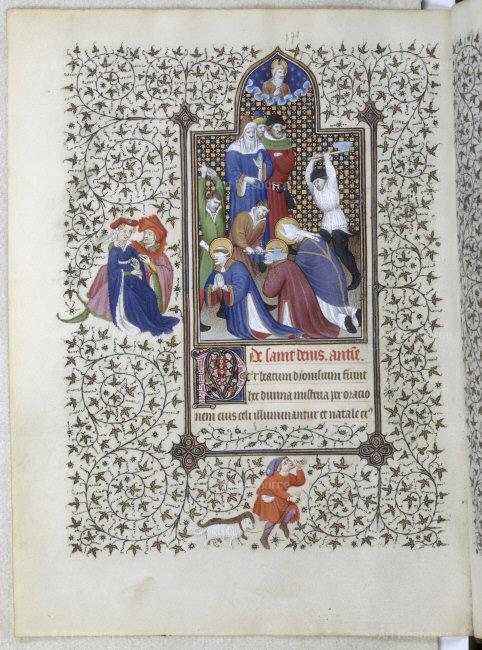 171
De saint denis. antie.
Per beatum dionisium fiunt
hec diuina misteria per oracio
nem eius celi illuminantur et natale er
Art Resource